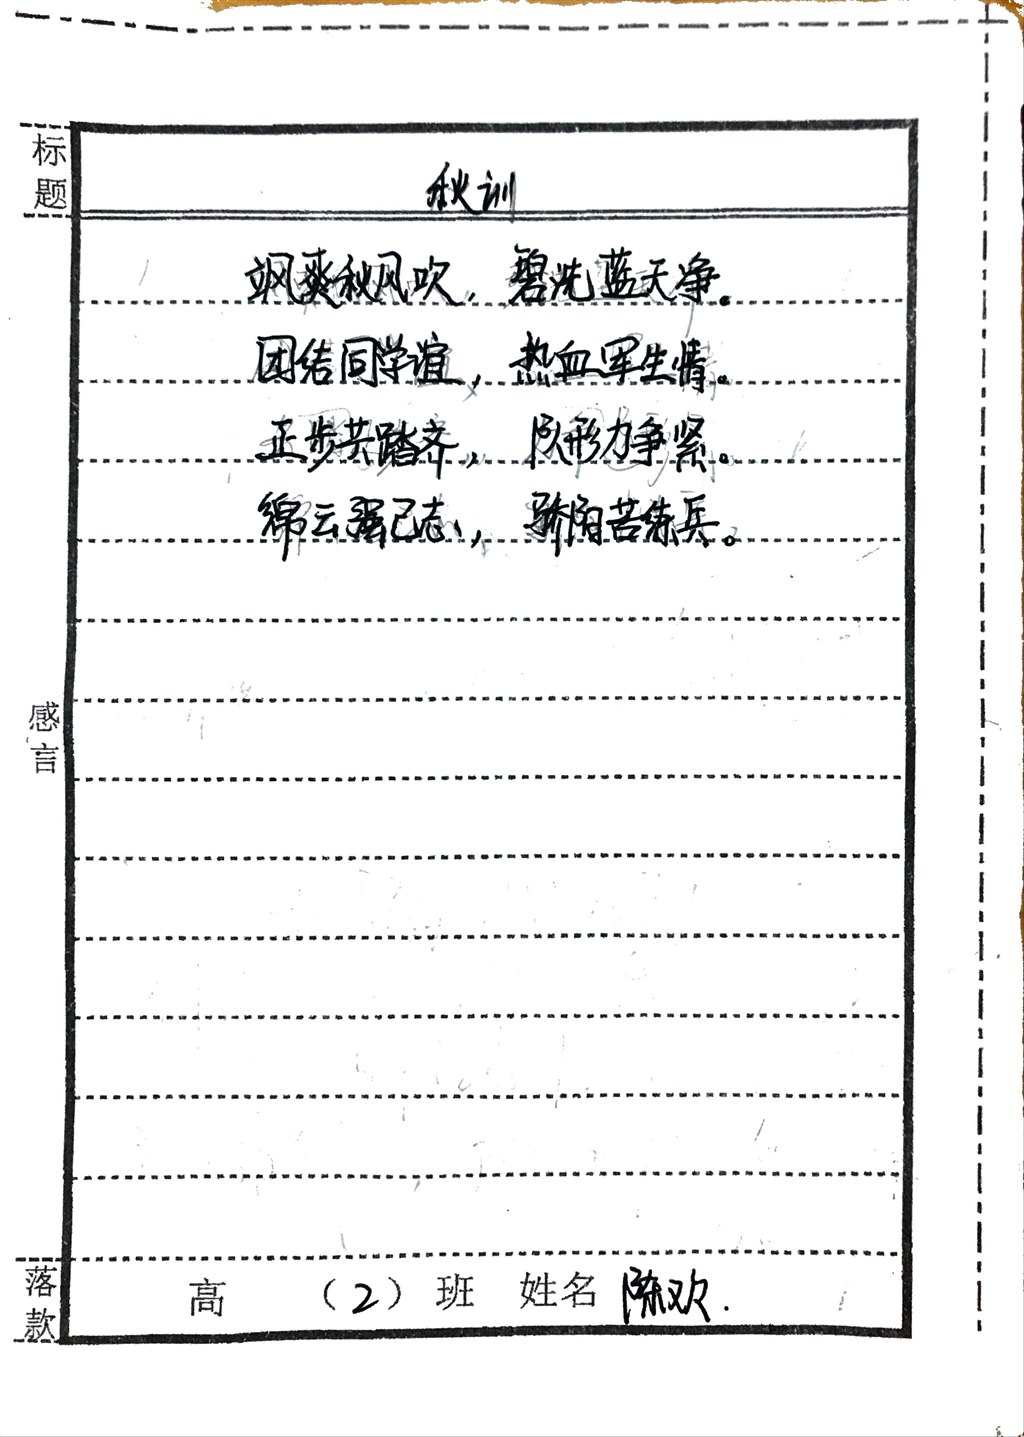 标题
秋训
飒爽秋风吹，碧洗蓝天净。
团结同学谊，热血军生情。
正步共踏齐，队形力争紧。
绵云强己志，骄阳苦练兵。
感言
落款
高 （2）班 姓名 陈欢.